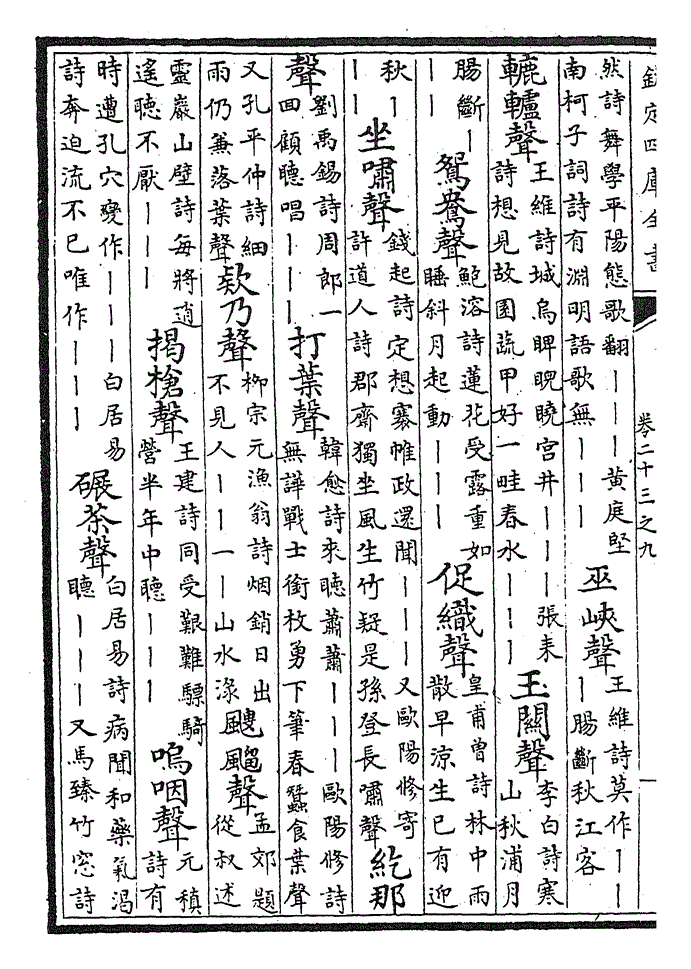 欽定四庫全書 卷二十三之九 一
然詩舞學平陽態歌翻｜｜｜黄庭堅
南柯子詞詩有淵明語歌無｜｜｜
巫峽聲
王維詩莫作｜｜
｜腸斷秋江客
轆轤聲
王維詩城烏睥睨曉宫井｜｜｜張耒
詩想見故園蔬甲好一畦春水｜｜｜
玉關聲
李白詩寒
山秋浦月
腸斷｜
｜｜
鴛鴦聲
鮑溶詩蓮花受露重如
睡斜月起動｜｜｜
促織聲
皇甫曾詩林中雨
散早涼生已有迎
秋｜
｜｜
坐嘯聲
錢起詩定想褰帷政還聞｜｜｜又歐陽修寄
許道人詩郡齋獨坐風生竹疑是孫登長嘯聲
紇那
聲
劉禹錫詩周郎一
回顧聽唱｜｜｜
打葉聲
韓愈詩來聽蕭蕭｜｜｜歐陽修詩
無譁戰士銜枚勇下筆春蠶食葉聲
又孔平仲詩細
雨仍兼落葉聲
欸乃聲
柳宗元漁翁詩烟銷日出
不見人｜｜一｜山水渌
颼飀聲
孟郊題
從叔述
靈巖山壁詩每將逍
遥聽不厭｜｜｜
揭槍聲
王建詩同受艱難驃騎
營半年中聽｜｜｜
嗚咽聲
元稹
詩有
時遭孔穴變作｜｜｜白居易
詩奔迫流不已唯作｜｜｜
碾茶聲
白居易詩病聞和藥氣渴
聽｜｜｜又馬臻竹窓詩